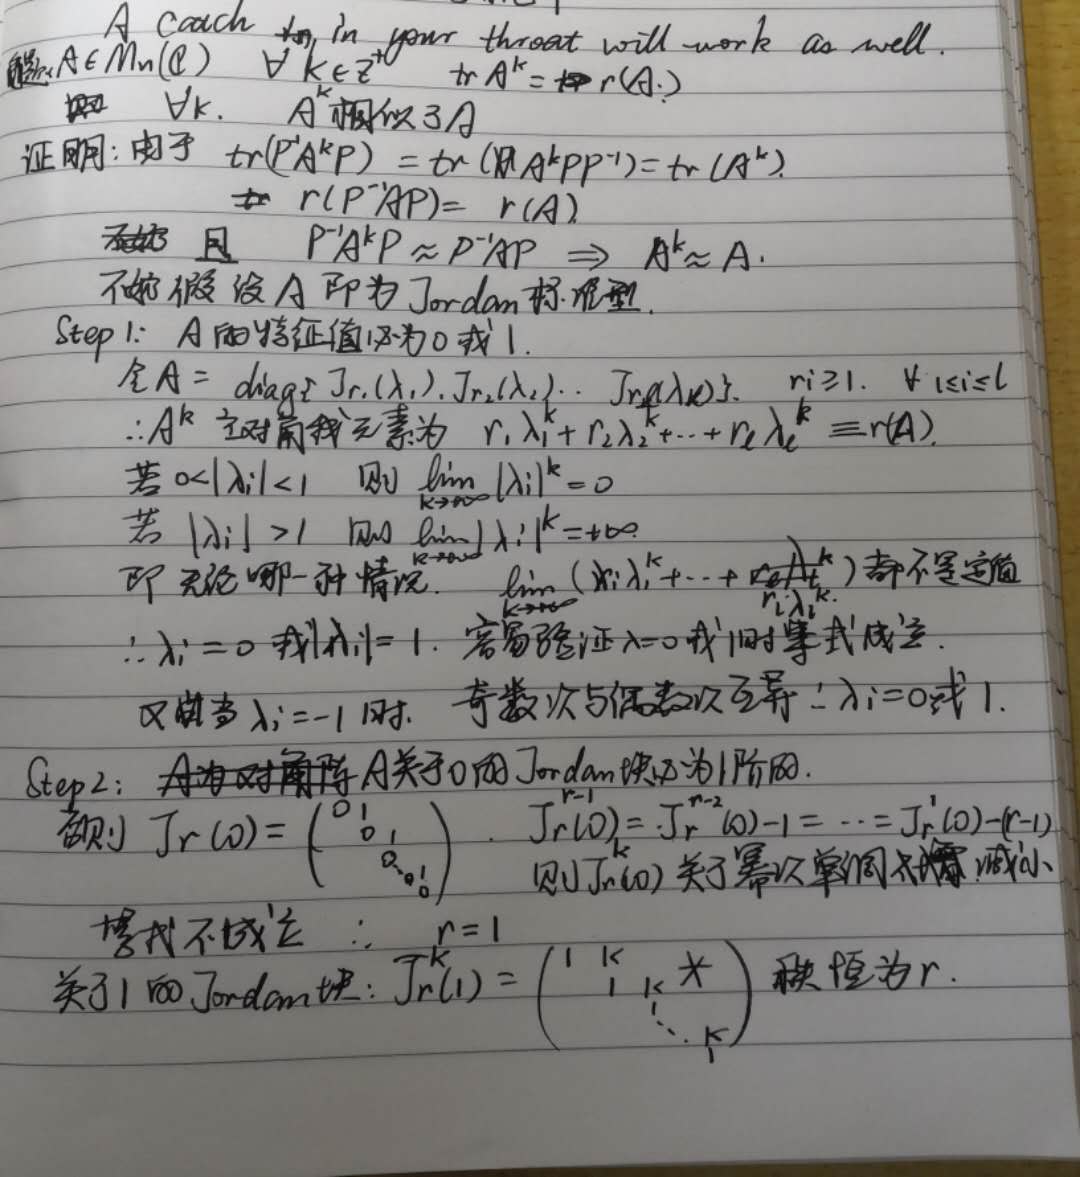 A coach in your throat will work as well.
题: A∈Mn(C) ∀ k∈Z⁺ tr Aᵏ = r(A)
∀k. Aᵏ相似于A
证明: 由于 tr(P⁻¹AᵏP) = tr(AᵏPP⁻¹) = tr(Aᵏ).
r(P⁻¹AP) = r(A)
且 P⁻¹AᵏP ≈ P⁻¹AP ⇒ Aᵏ ≈ A.
不妨假设A即为Jordan标准型.
Step 1: A的特征值必为0或1.
令A = diag{Jr₁(λ₁), Jr₂(λ₂)... }. ri≥1. ∀ 1≤i≤l
∴Aᵏ主对角线元素为 r₁λ₁ᵏ+r₂λ₂ᵏ+...+rₗλₗᵏ ≡ r(A).
若 0<|λi|<1 则 lim k→+∞ |λi|ᵏ = 0
若 |λi|>1 则 lim k→+∞ |λi|ᵏ = +∞
即无论哪一种情况. lim k→+∞ (r₁λ₁ᵏ+...+rₗλₗᵏ)都不是定值
∴λi=0或|λi|=1. 容易验证λ=0或1时等式成立.
又当λi=-1时. 奇数次与偶数次互异∴λi=0或1.
Step 2: A关于0的Jordan块必为1阶的.
否则 Jr(0) = (0 1 0 1 0 1 0) . Jʳ⁻¹r(0) = Jʳ⁻²r(0)-1 = ... = J¹r(0)-(r-1)
则Jᵏr(0)关于幂次单调减小
等式不成立 ∴ r=1
关于1的Jordan块: Jᵏr(1) = (1 k 1 k * k 1) 秩恒为r.